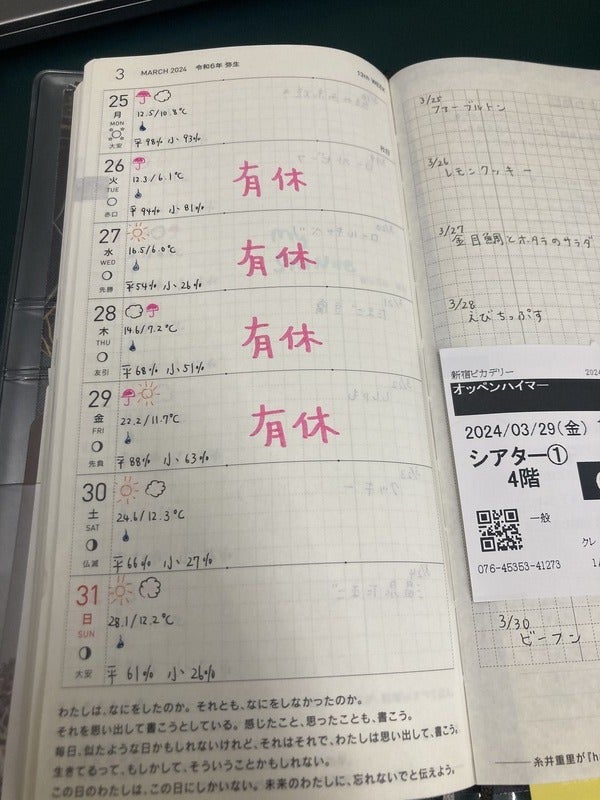 3 MARCH 2024 令和6年 弥生 13th WEEK
25
月
MON
大安
12.5/10.8℃
平98% 小93%
26
火
TUE
赤口
12.3/6.1℃
平94% 小81%
有休
27
水
WED
先勝
16.5/6.0℃
平54% 小26%
有休
28
木
THU
友引
14.6/7.2℃
平68% 小51%
有休
29
金
FRI
先負
22.2/11.7℃
平88% 小63%
有休
30
土
SAT
仏滅
24.6/12.3℃
平66% 小27%
31
日
SUN
大安
28.1/12.2℃
平61% 小26%
わたしは、なにをしたのか。それとも、なにをしなかったのか。
それを思い出して書こうとしている。感じたこと、思ったことも、書こう。
毎日、似たような日かもしれないけれど、それはそれで、わたしは思い出して、書こう。
生きてるって、もしかして、そういうことかもしれない。
この日のわたしは、この日にしかいない。未来のわたしに、忘れないでと伝えよう。
3/25
ファーブルトン
3/26
レモンクッキー
3/27
金目鯛とホタテのサラダ
3/28
えびちっぷす
新宿ピカデリー
オッペンハイマー
2024/03/29(金)
シアター①
4階
一般
076-45353-41273
3/30
ビーフン
糸井重里が『h